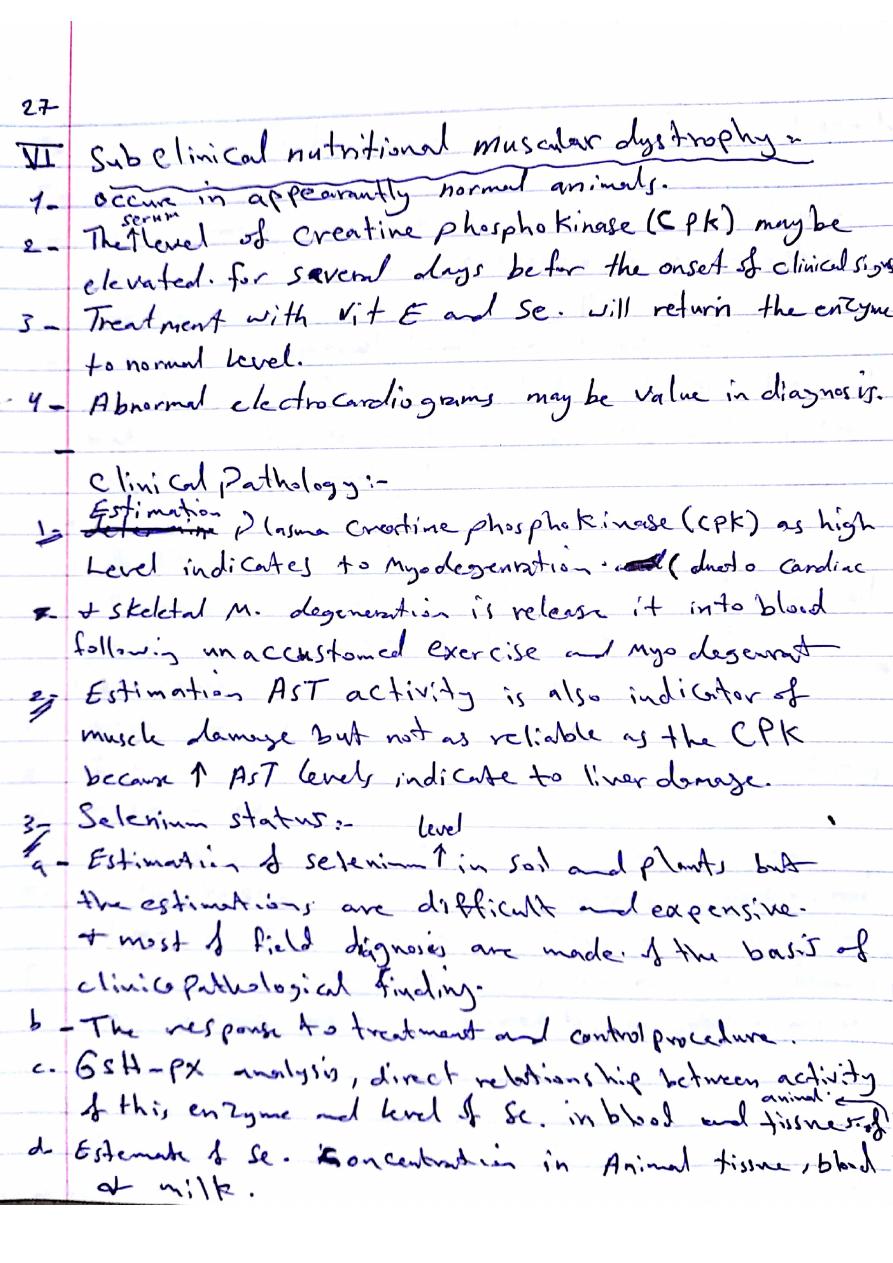 27
VI Subclinical nutritional muscular dystrophy:-
1- occure in appearantly normal animals.
2- The ↑ serum level of Creatine phosphokinase (CPK) may be
elevated. for several days befor the onset of clinical signs
3- Treatment with Vit E and Se. will return the enzyme
to normal level.
4- Abnormal electrocardiograms may be value in diagnosis.
Clinical Pathology:-
1- Estimation Plasma Creatine phosphokinase (CPK) as high
Level indicates to Myodegenration. (dueto Cardiac
+ skeletal M. degeneration is release it into blood
following unaccustomed exercise and Myodegenrat
2- Estimation AST activity is also indicator of
muscle damage but not as reliable as the CPK
because ↑ AST levels indicate to liver damage.
3- Selenium status:-
a- Estimation of selenium ↑ level in soil and plants but
the estimations are difficult and expensive.
+ most of field diagnoses are made. of the basis of
clinicopathological finding.
b- The response to treatment and control procedure.
c. GSH-PX analysis, direct relationship between activity
of this enzyme and level of Se. in blood and tissues of animal.
d- Estemate of Se. Concentration in Animal tissue, blood
or milk.